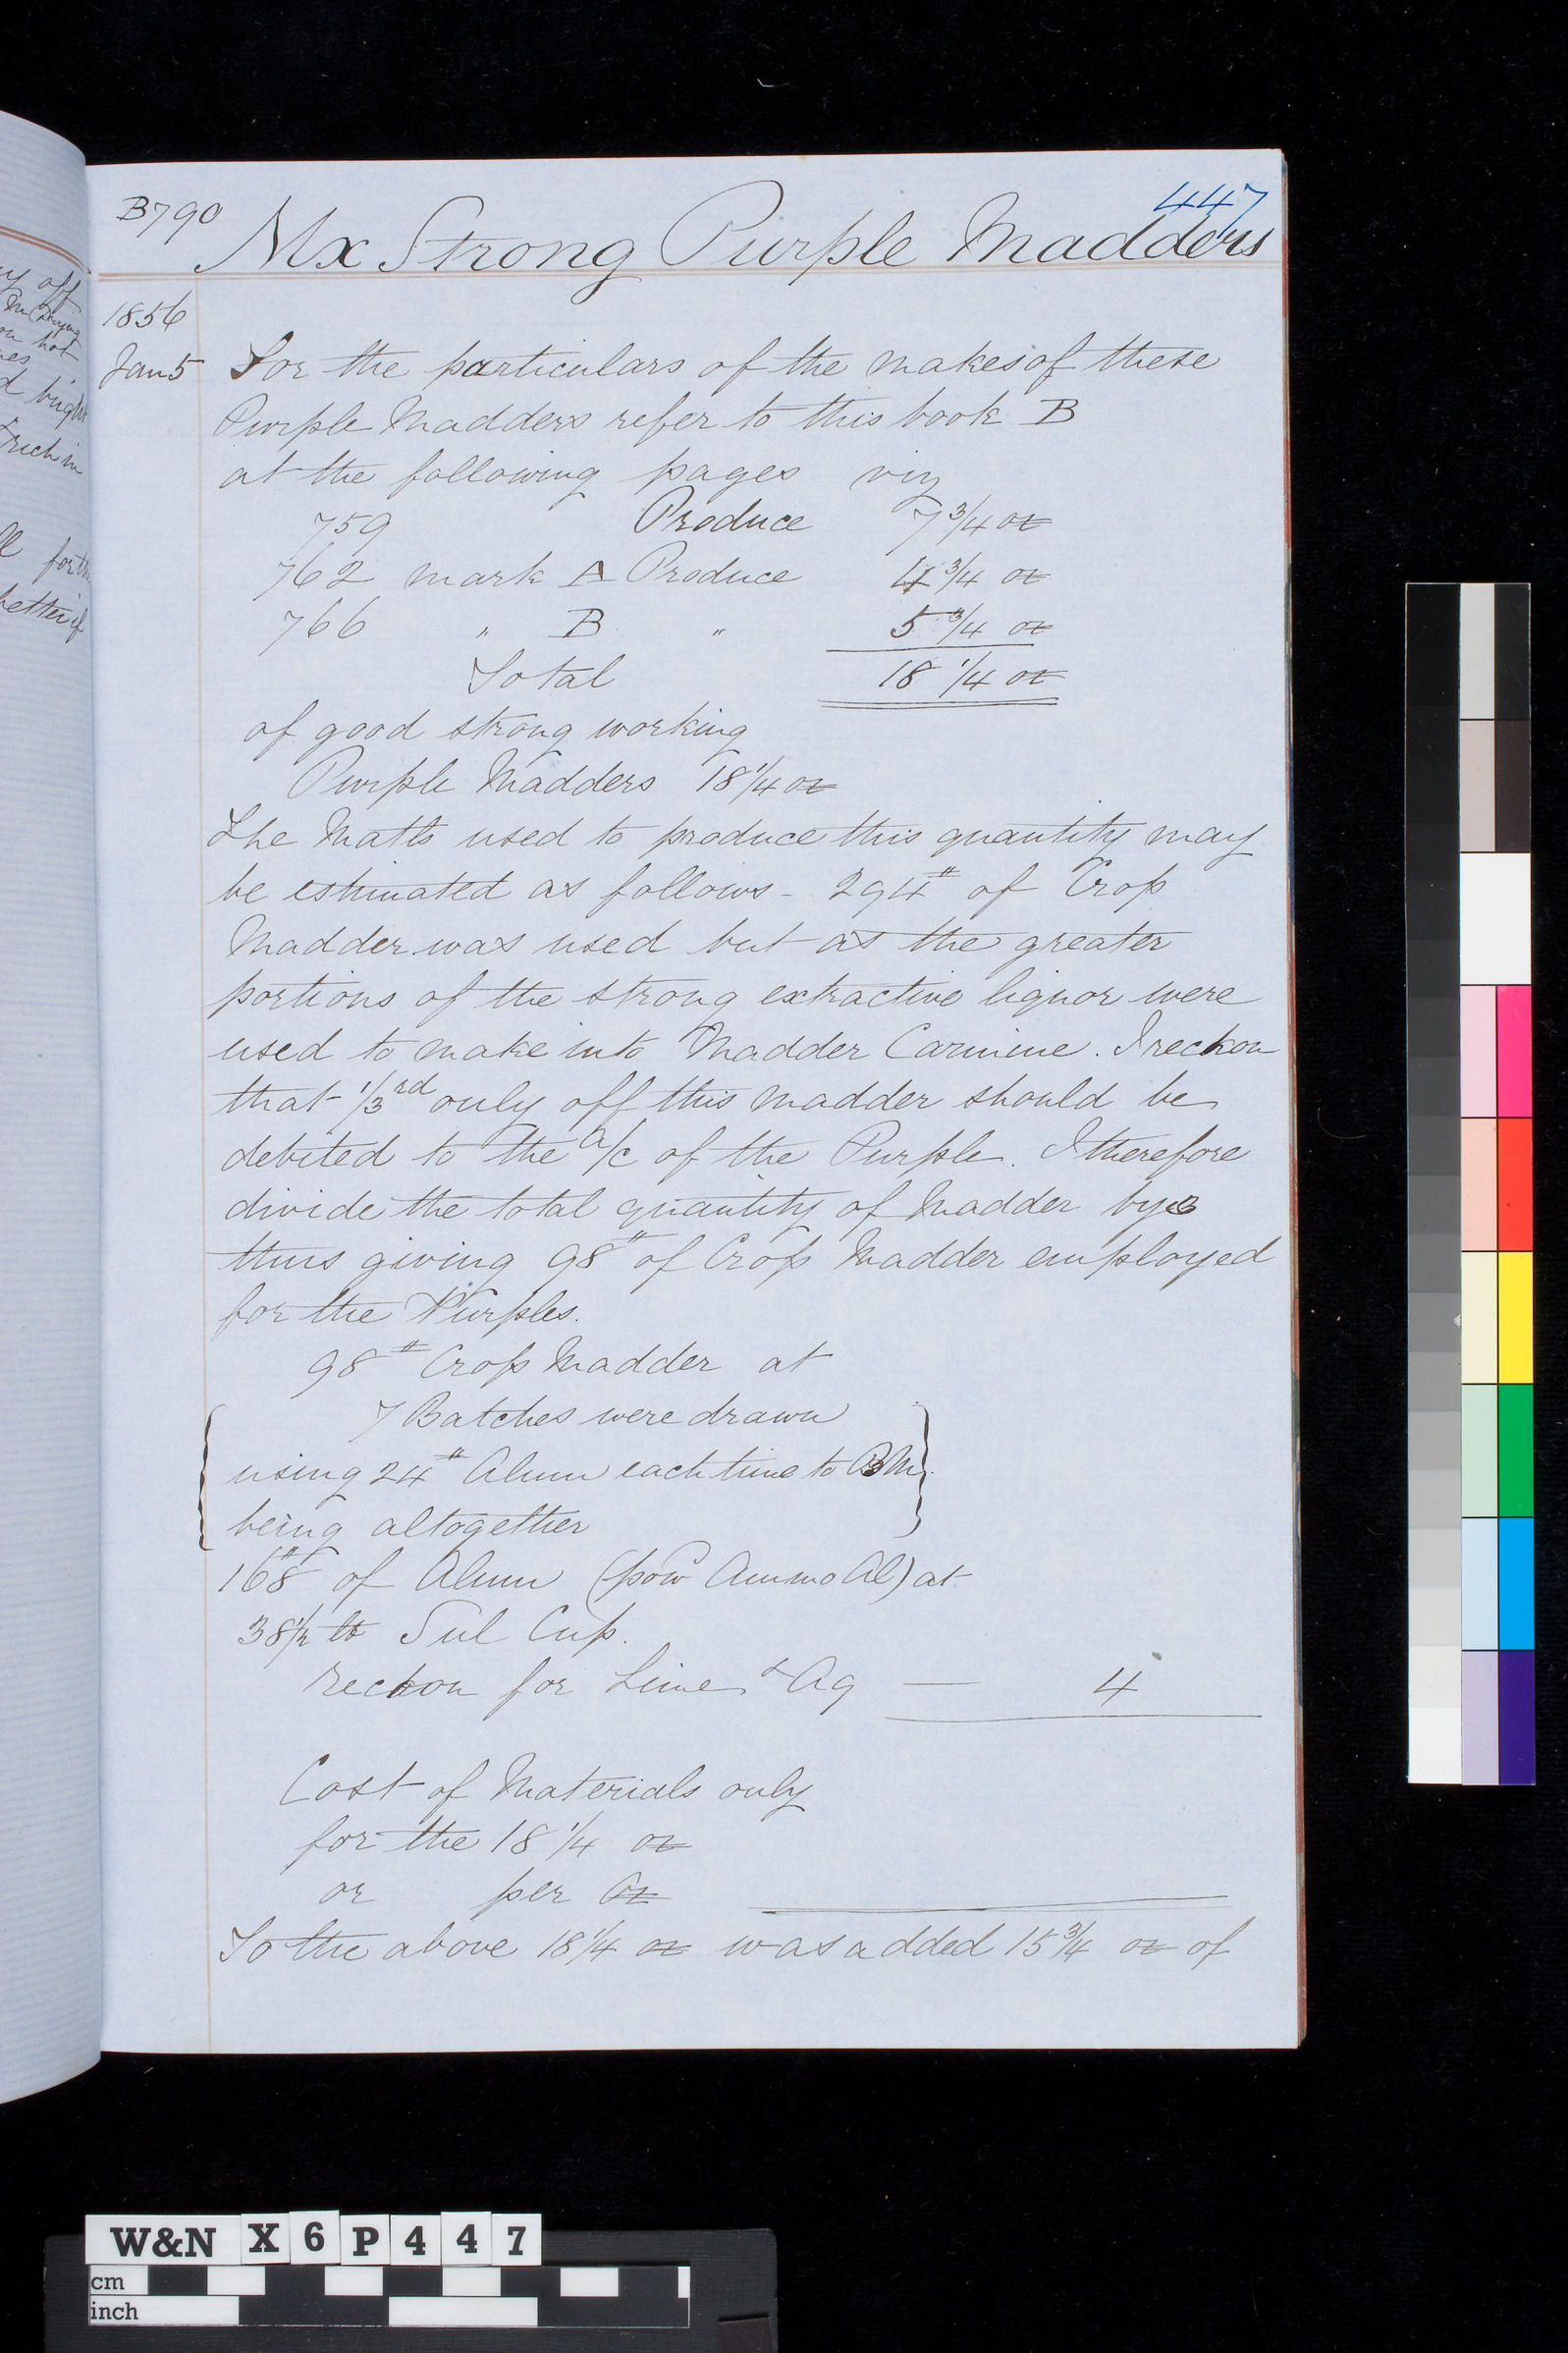 B790
447
Mx Strong Purple Madders
1856
Jan 5 For the particulars of the makes of these
Purple Madders refer to this book B
at the following pages viz
759 Produce 7 3/4 oz
762 mark A Produce 4 3/4 oz
766 " B " 5 3/4 oz
Total 18 1/4 oz
of good strong working
Purple Madders 18 1/4 oz
The Matls used to produce this quantity may
be estimated as follows - 294 # of Crop
Madder was used but as the greater
portions of the strong extractive liquor were
used to make into Madder Carmine. I reckon
that 1/3rd only off this madder should be
debited to the a/c of the Purple. I therefore
divide the total quantity of Madder by 3
thus giving 98 # of Crop Madder employed
for the Purples.
98 # Crop Madder at
7 Batches were drawn
using 24 # Alum each time to
being altogether
168 # of Alum (pow Ammo Al) at
38 1/2 lb Sul Cup.
reckon for Lime & Aq — 4
Cost of Materials only
for the 18 1/4 oz
or per Oz
To the above 18 1/4 oz was added 15 3/4 oz of
y off
hot
d bright
rich in
for the
better if
W&N X6P447
cm
inch